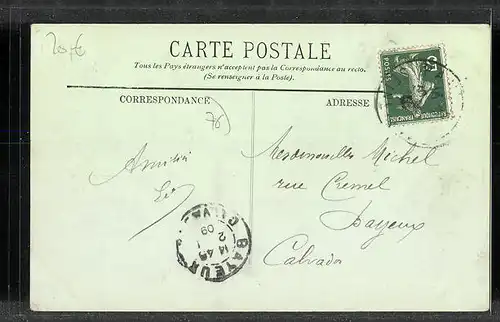 20f€
CARTE POSTALE
Tous les Pays étrangers n'acceptent pas la Correspondance au recto.
(Se renseigner à la Poste).
CORRESPONDANCE
ADRESSE
76
Mesdemoiselles Michel
rue Cremel
Bayeux
Calvados
BAYEUX
14 45
2
09
CALVA
POSTES
RÉPUBLIQUE FRANÇAISE
5